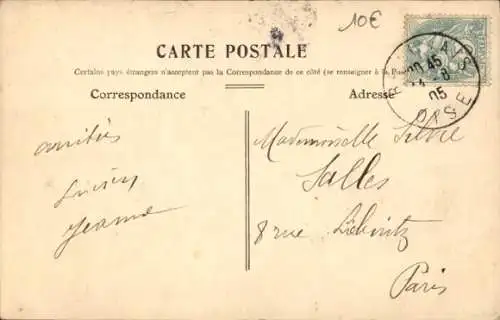 10€
CARTE POSTALE
Certains pays étrangers n'acceptent pas la Correspondance de ce côté (se renseigner à la Poste)
Correspondance
Adresse
amitiés
Lucien
Jeanne
Mademoiselle
Salles
8 rue Leibnitz
Paris
45
05
OISE